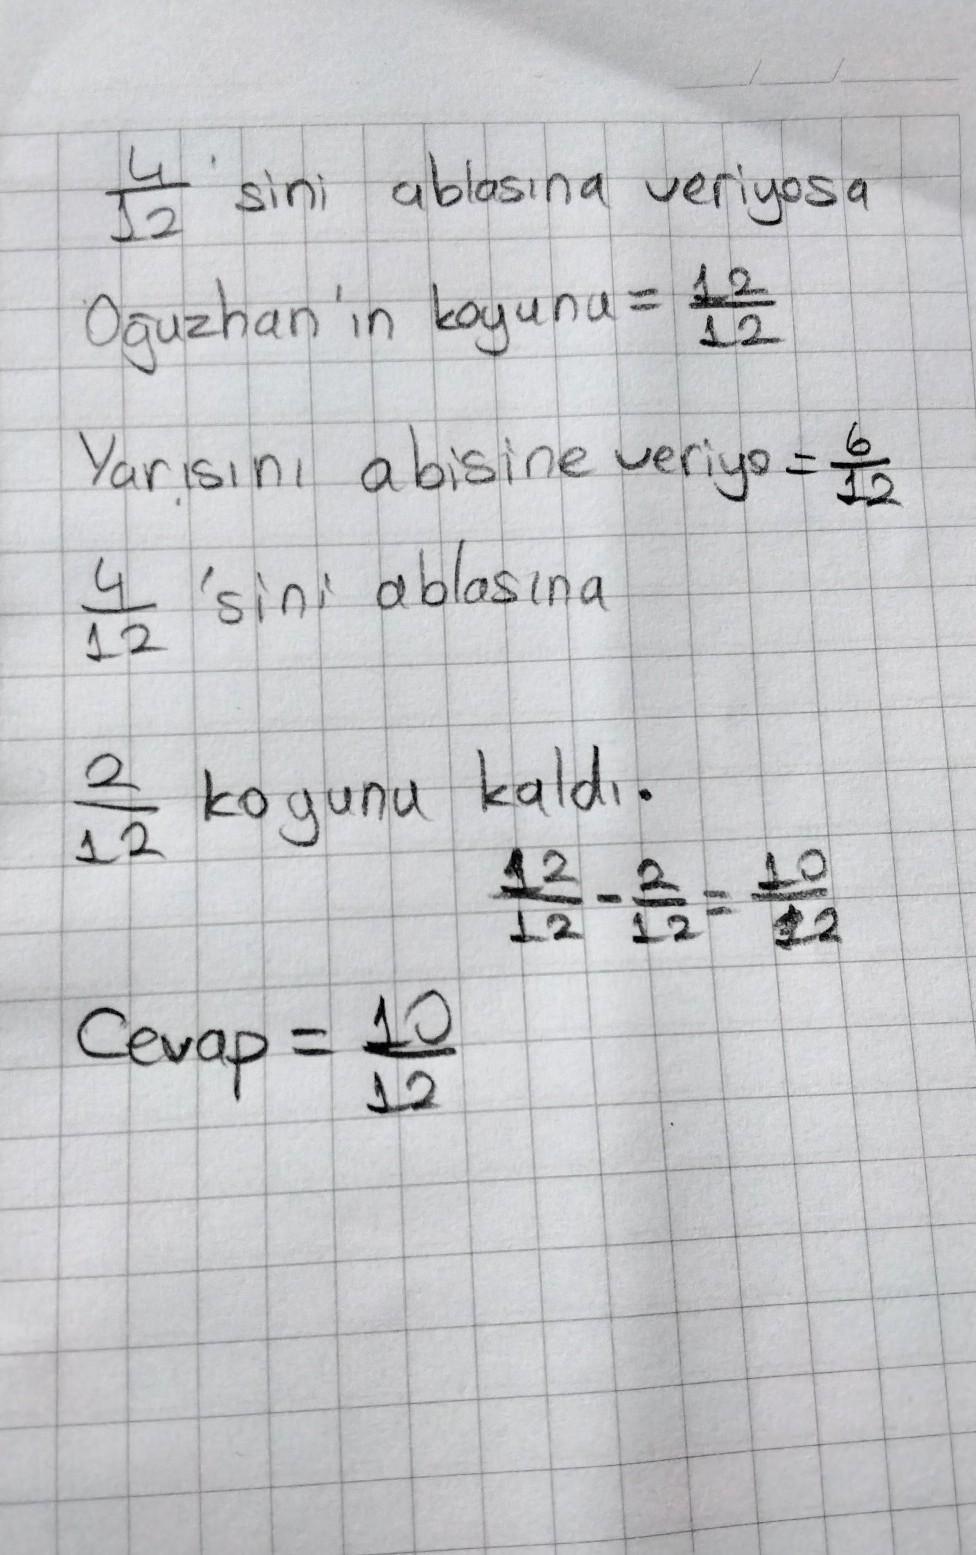 4/12 'sini ablasına veriyosa
Oğuzhan'ın koyunu = 12/12
Yarısını abisine veriyo = 6/12
4/12 'sini ablasına
2/12 koyunu kaldı.
12/12 - 2/12 = 10/12
Cevap = 10/12